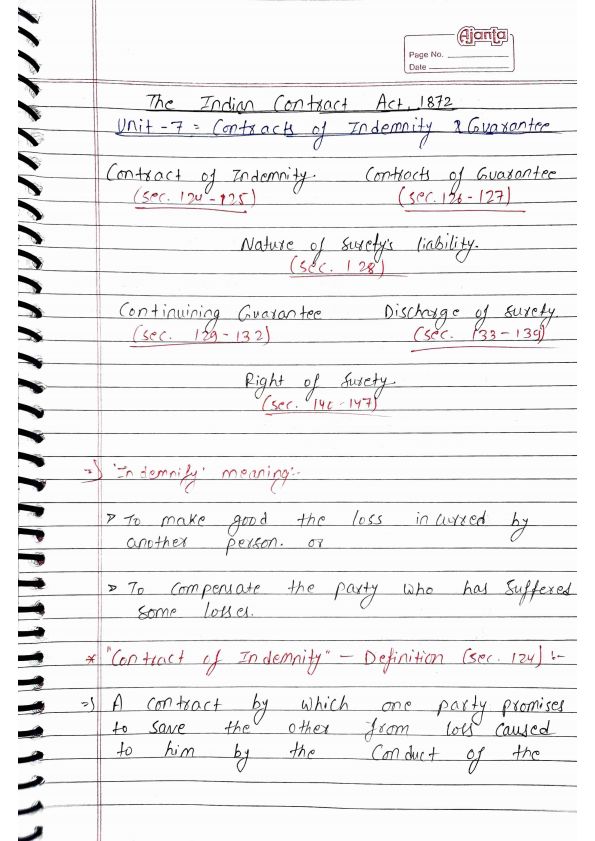 Ajanta
Page No.
Date
The Indian Contract Act, 1872
Unit - 7 = Contracts of Indemnity & Guarantee
Contract of Indemnity. Contracts of Guarantee
(Sec. 124 - 125) (Sec. 126 - 127)
Nature of Surety's liability.
(Sec. 128)
Continuining Guarantee Discharge of Surety.
(Sec. 129 - 132) (Sec. 133 - 139)
Right of Surety.
(Sec. 140 - 147)
=> 'Indemnify' meaning:-
> To make good the loss incurred by
another person. or
> To compensate the party who has suffered
some losses.
* "Contract of Indemnity" - Definition (Sec. 124) :-
=> A contract by which one party promises
to save the other from loss caused
to him by the Conduct of the